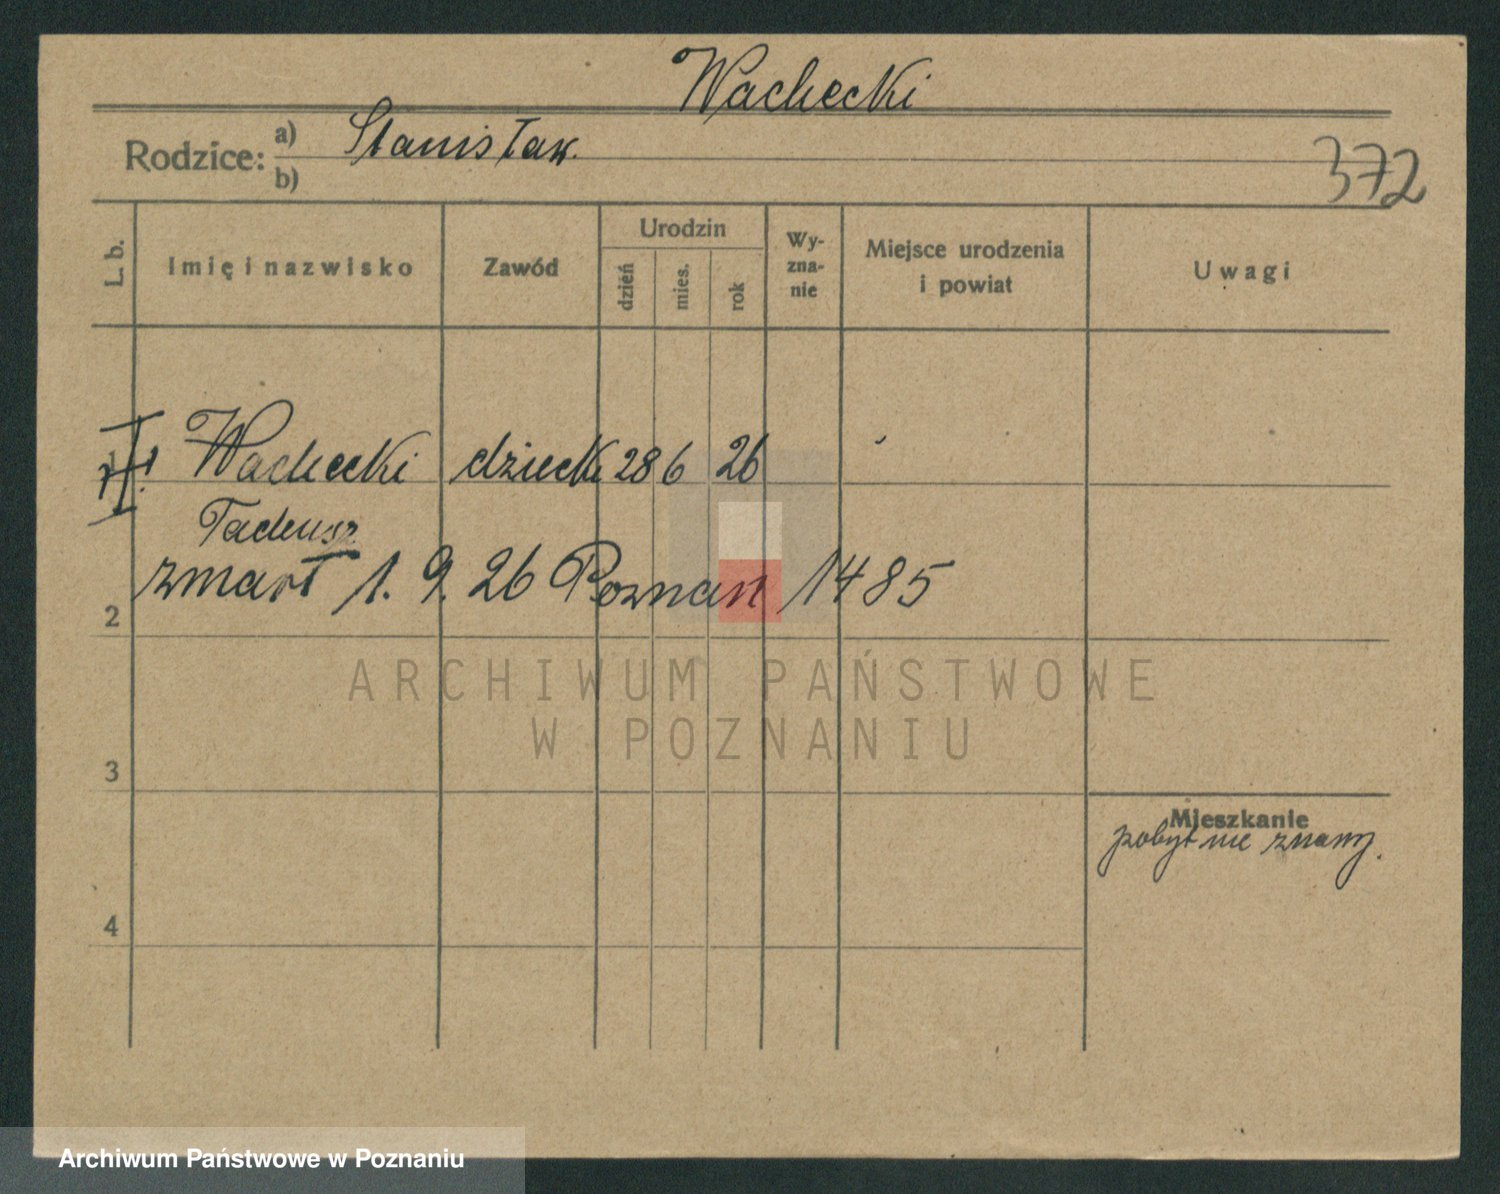 Wachecki
Rodzice: a) Stanisław.
b)
372
L. b. Imię i nazwisko Zawód Urodzin dzień mies. rok Wy-zna-nie Miejsce urodzenia i powiat Uwagi
1 Wachecki dziecko 28 6 26
Tadeusz
zmarł 1. 9. 26 Poznań 1485
2
3
4
Mieszkanie
pobyt nie znany.
ARCHIWUM PAŃSTWOWE
W POZNANIU
Archiwum Państwowe w Poznaniu